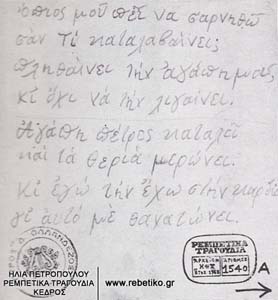 ὅποιος μοῦ πεῖ νὰ σ' ἀρνηθῶ
σὰν τί καταλαβαίνει;
πληθαίνει τὴν ἀγάπη μας
κι ὄχι νὰ τὴν λιγαίνει.
Ἀγάπη πέτρες καταλεῖ
καὶ τὰ θεριὰ μερώνει.
Κι ἐγὼ τὴν ἔχω στὴν καρδιὰ
γι' αὐτὸ μὲ θανατώνει.
ΡΕΜΠΕΤΙΚΑ
ΤΡΑΓΟΥΔΙΑ
1540
ΗΛΙΑ ΠΕΤΡΟΠΟΥΛΟΥ
ΡΕΜΠΕΤΙΚΑ ΤΡΑΓΟΥΔΙΑ
ΚΕΔΡΟΣ
www.rebetiko.gr
A